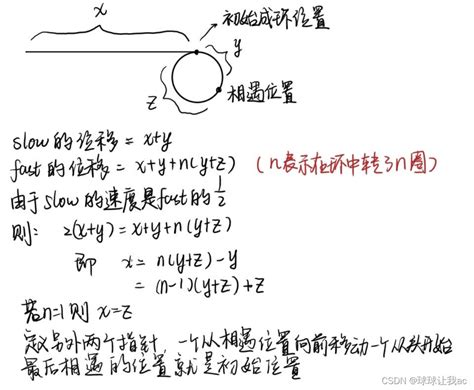 x
初始成环位置
y
z
相遇位置
slow的位移 = x+y
fast的位移 = x+y+n(y+z) (n表示在环中转了n圈)
由于slow的速度是fast的 1/2
则: 2(x+y) = x+y+n(y+z)
即 x = n(y+z)-y
= (n-1)(y+z)+z
若n=1则 x=z
定义另外两个指针,一个从相遇位置向前移动一个从头开始
最后相遇的位置就是初始位置
CSDN @球球让我ac